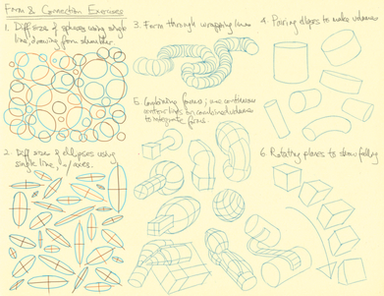 Form & Connection Exercises
1. Diff sizes of spheres using single
line, drawing from shoulder
2. Diff sizes of ellipses using
single line, w/ axes.
3. Form through wrapping lines
5. Combining forms; use continuous
contour lines on combined volume
to integrate forms.
4. Pairing ellipses to make volumes
6. Rotating planes to show falling